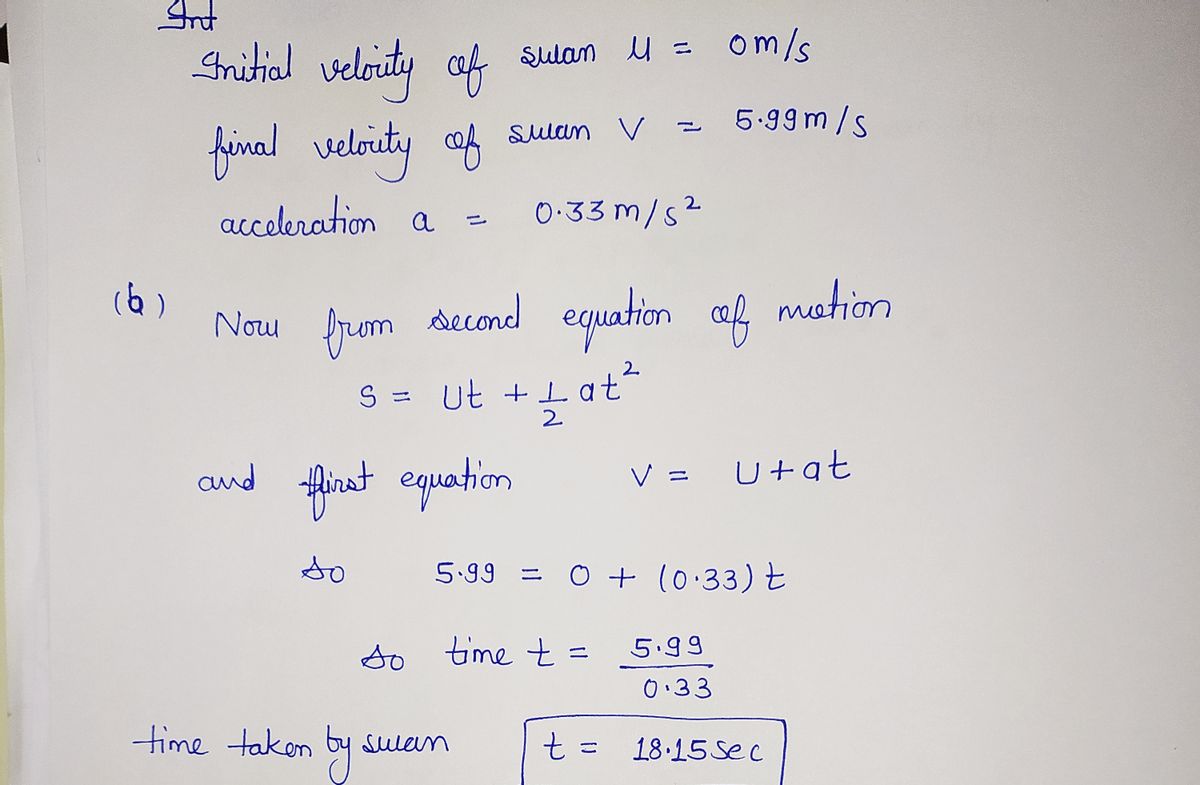 Int
Initial velocity of swan u = 0 m/s
final velocity of swan v = 5.99 m/s
acceleration a = 0.33 m/s²
(b) Now from second equation of motion
S = Ut + 1/2 at²
and first equation V = U + at
So 5.99 = 0 + (0.33) t
So time t = 5.99/0.33
time taken by swan t = 18.15 sec